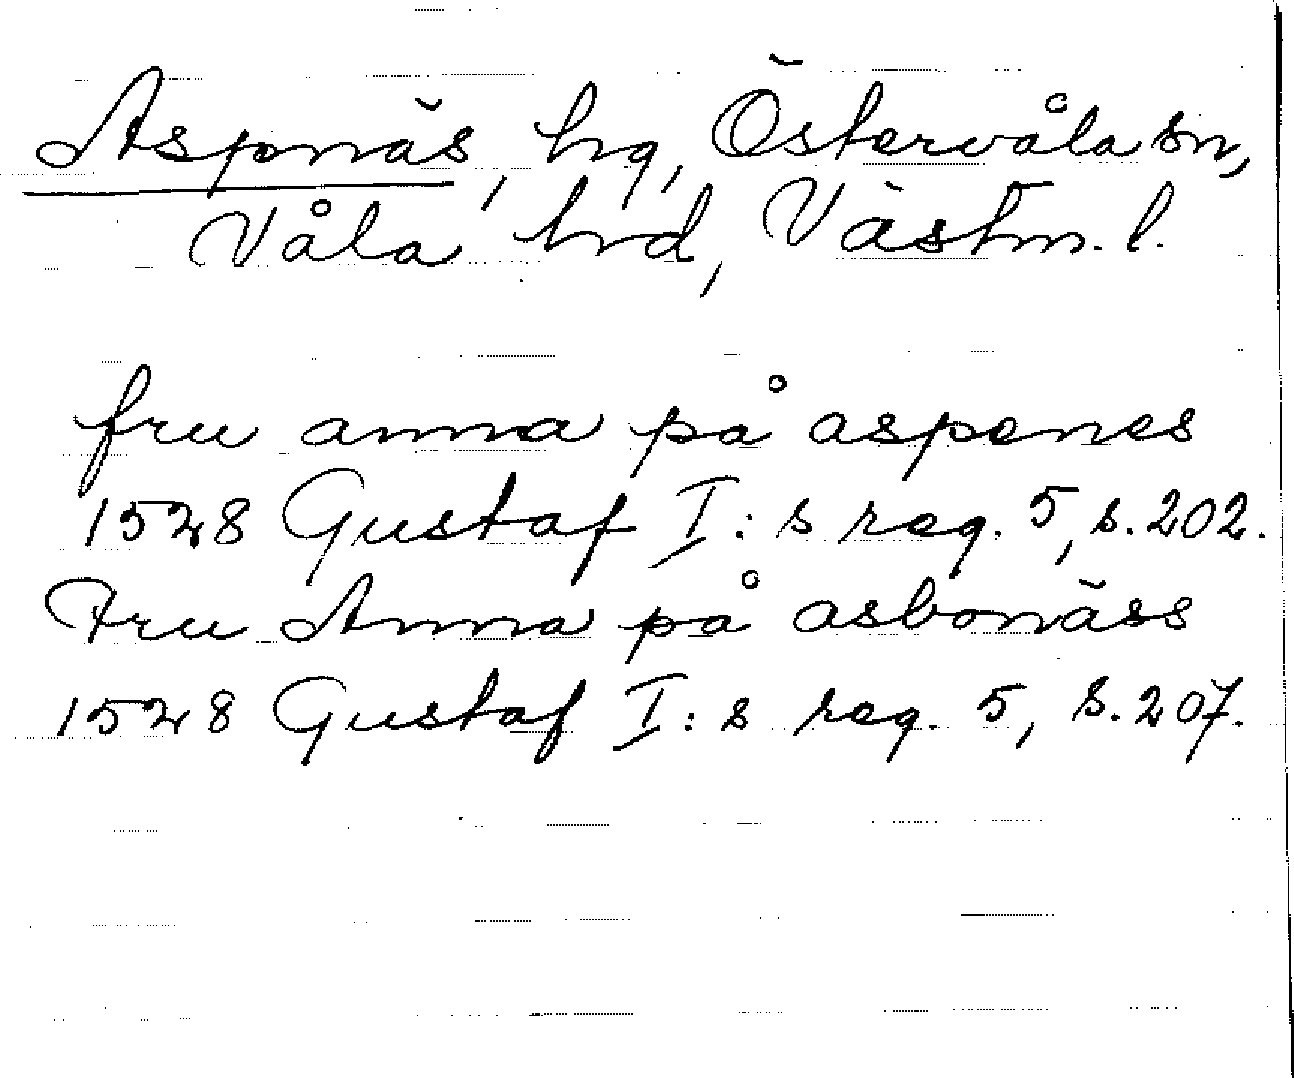 Aspnäs, hg, Östervåla sn,
Våla hrd, Västm. l.
fru anna på aspenes
1528 Gustaf I:s reg. 5, s. 202.
Fru Anna på asbonäss
1528 Gustaf I:s reg. 5, s. 207.